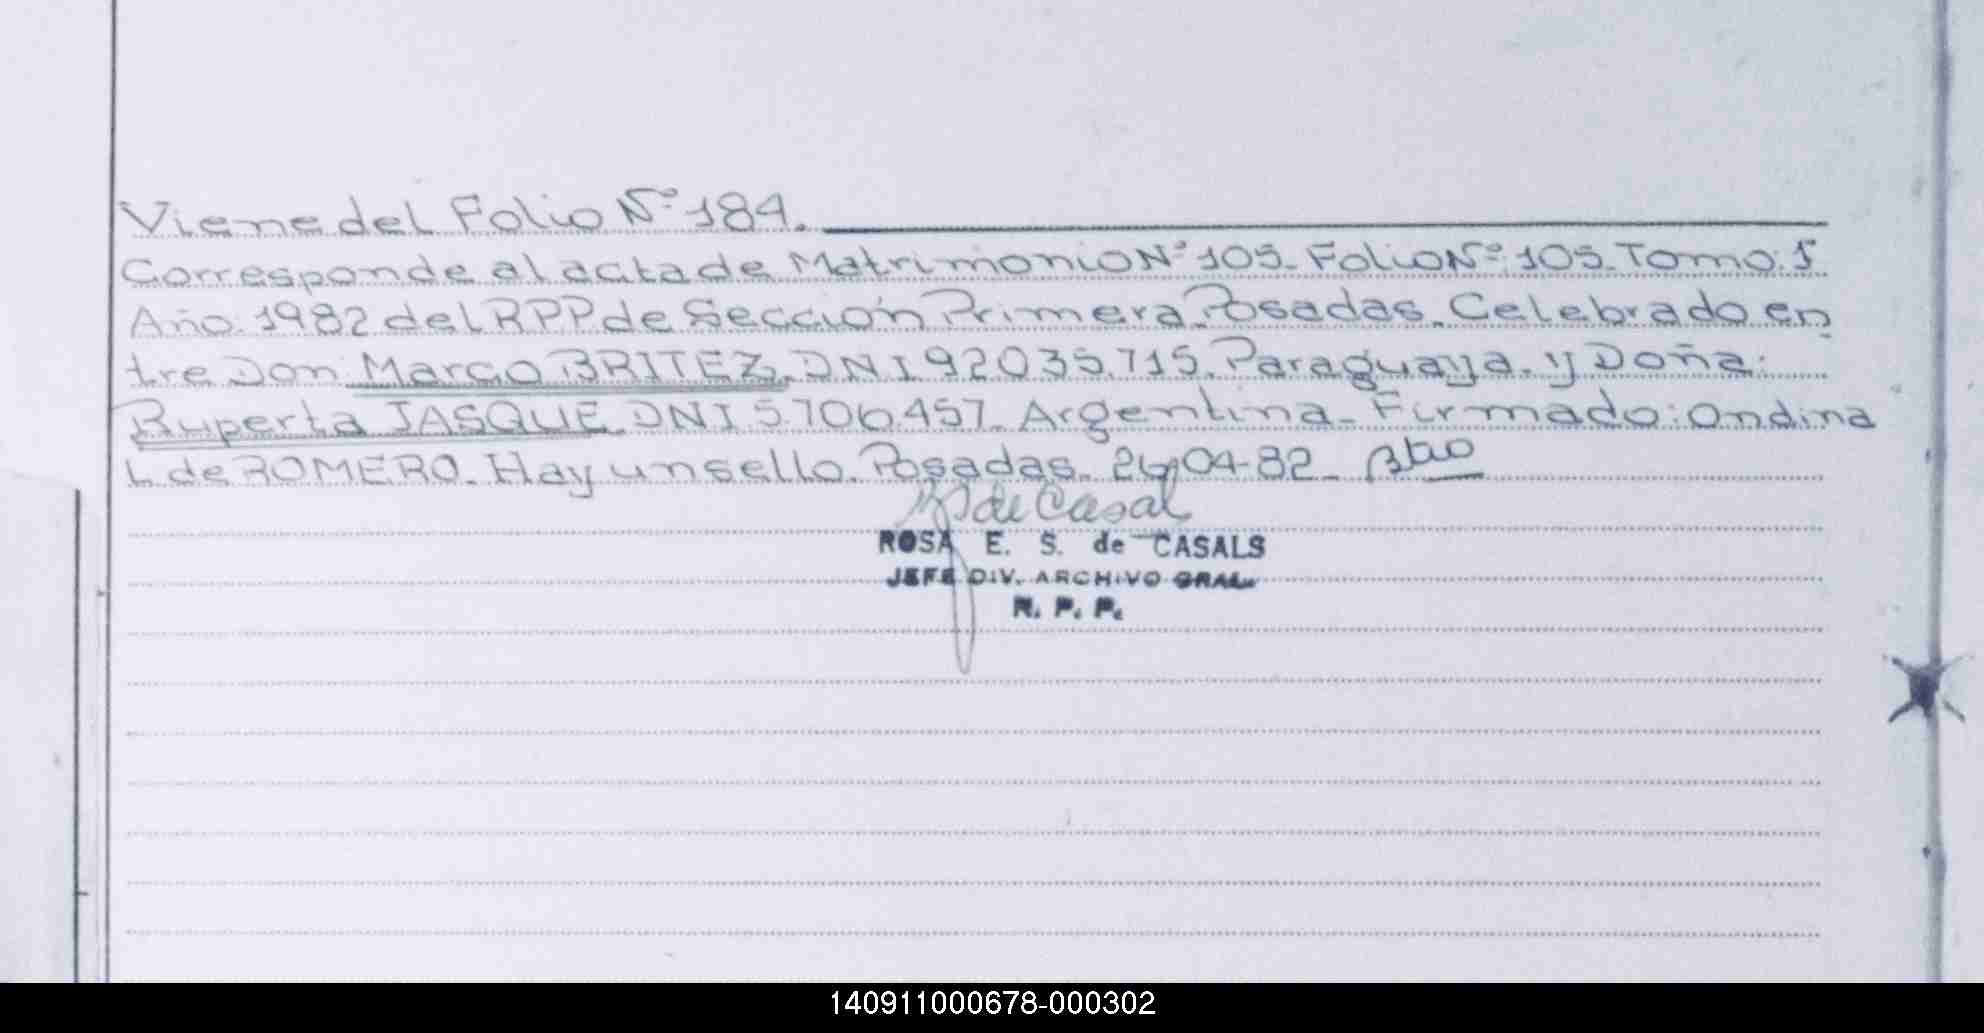 Viene del Folio Nº 184.
Corresponde al acta de Matrimonio Nº 105. Folio Nº: 105. Tomo: 1º
Año 1982 del RPP de Sección Primera. Posadas. Celebrado en
tre Don: Marco BRITEZ. DNI 92.035.715. Paraguaya. y Doña:
Ruperta JASQUE. DNI 5.706.457. Argentina. Firmado: Ondina
L. de ROMERO. Hay un sello. Posadas. 04-82
de Casal
ROSA E. S. de CASALS
JEFE DIV. ARCHIVO GRAL.
R. P. P.
140911000678-000302